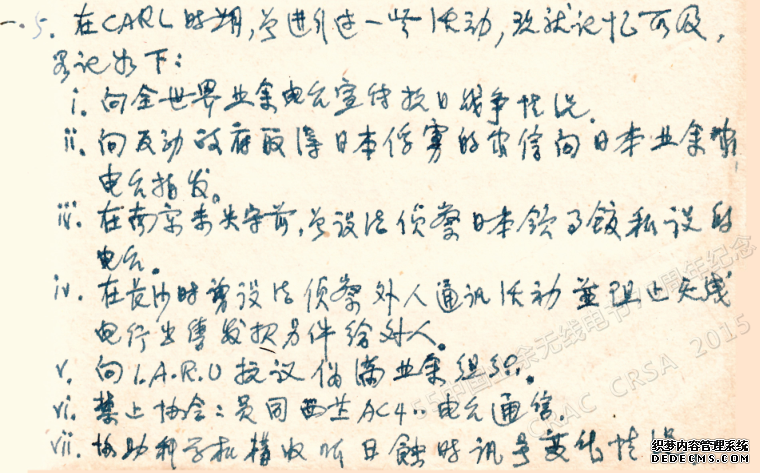 一.5. 在CARL时期,曾进行过一些活动,现就记忆所及,
略记如下:
i. 向全世界业余电台宣传抗日战争情况.
ii. 向反动政府取得日本俘虏的书信向日本业余
电台拍发。
iii. 在南京未失守前,曾设法侦察日本领事馆私设的
电台。
iv. 在长沙时曾设法侦察外人通讯活动並阻止无线
电行出售发报另件给外人。
v. 向I.A.R.U抗议伪满业余组织.
vi. 禁止协会会员同西芷AC4..电台通信.
vii. 协助科学机构收听日蚀时讯号变化情况
中国业余无线电 周年纪念
CRAC CRSA 2015
软梦内容管理系统
DEDECMS.COM